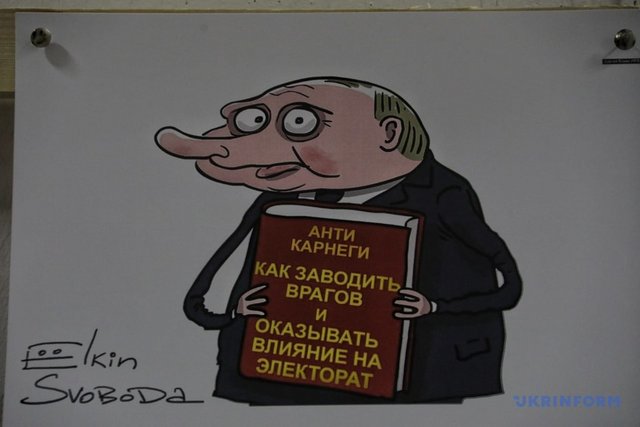 АНТИ
КАРНЕГИ
КАК ЗАВОДИТЬ
ВРАГОВ
И
ОКАЗЫВАТЬ
ВЛИЯНИЕ НА
ЭЛЕКТОРАТ
Ёlkin
SVOBODA
UKRINFORM